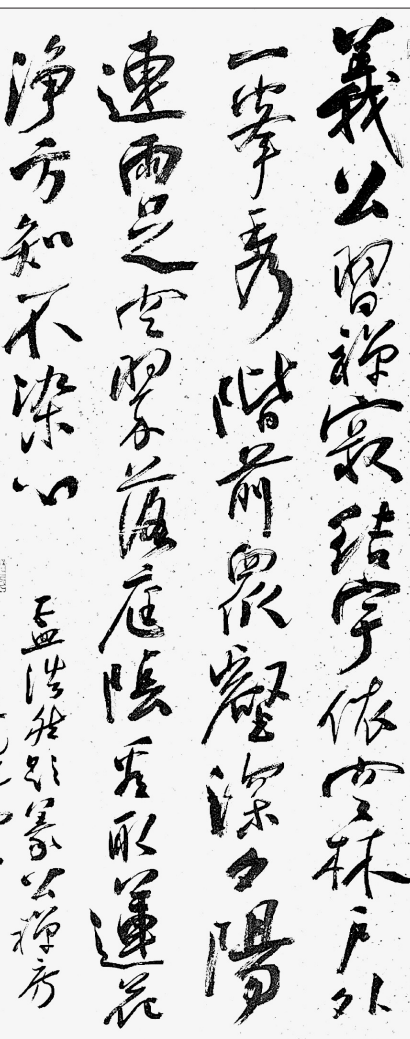 義公習禪寂結宇依空林戶外
一峯秀階前眾壑深夕陽
連雨足空翠落庭陰看取蓮花
淨方知不染心
孟浩然題義公禪房